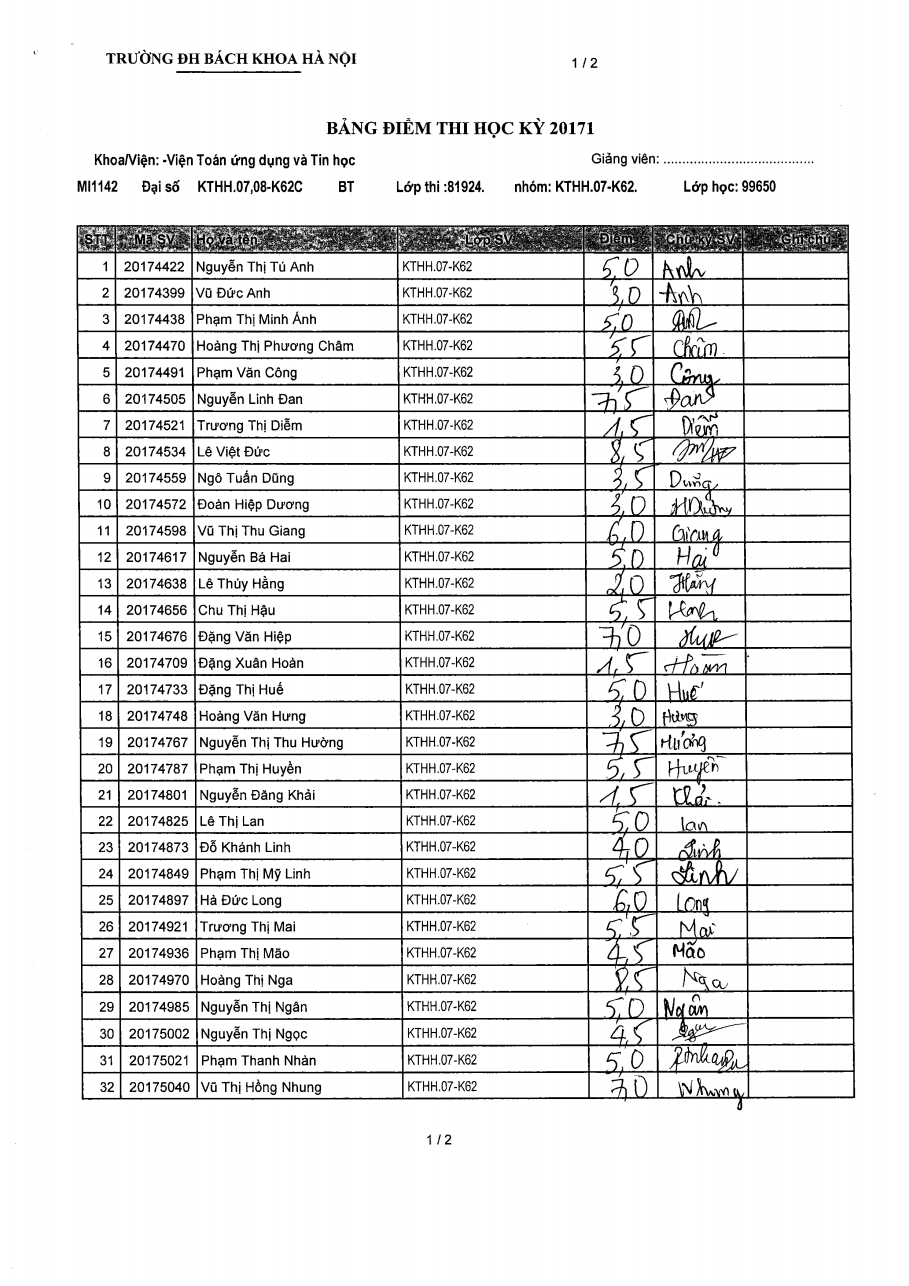 TRƯỜNG ĐH BÁCH KHOA HÀ NỘI 1 / 2
BẢNG ĐIỂM THI HỌC KỲ 20171
Khoa/Viện: -Viện Toán ứng dụng và Tin học Giảng viên: ........................................
MI1142 Đại số KTHH.07,08-K62C BT Lớp thi :81924. nhóm: KTHH.07-K62. Lớp học: 99650
STT Mã SV Họ và tên Lớp SV Điểm Chữ ký SV Ghi chú
1 20174422 Nguyễn Thị Tú Anh KTHH.07-K62 5,0 Anh
2 20174399 Vũ Đức Anh KTHH.07-K62 3,0 Anh
3 20174438 Phạm Thị Minh Ánh KTHH.07-K62 5,0
4 20174470 Hoàng Thị Phương Châm KTHH.07-K62 5,5 Châm
5 20174491 Phạm Văn Công KTHH.07-K62 3,0 Công
6 20174505 Nguyễn Linh Đan KTHH.07-K62 7,5 Đan
7 20174521 Trương Thị Diễm KTHH.07-K62 1,5 Diễm
8 20174534 Lê Việt Đức KTHH.07-K62 8,5
9 20174559 Ngô Tuấn Dũng KTHH.07-K62 3,5 Dũng
10 20174572 Đoàn Hiệp Dương KTHH.07-K62 3,0 HDương
11 20174598 Vũ Thị Thu Giang KTHH.07-K62 6,0 Giang
12 20174617 Nguyễn Bá Hai KTHH.07-K62 5,0 Hai
13 20174638 Lê Thúy Hằng KTHH.07-K62 2,0 Hằng
14 20174656 Chu Thị Hậu KTHH.07-K62 5,5
15 20174676 Đặng Văn Hiệp KTHH.07-K62 7,0
16 20174709 Đặng Xuân Hoàn KTHH.07-K62 1,5 Hoàn
17 20174733 Đặng Thị Huế KTHH.07-K62 5,0 Huế
18 20174748 Hoàng Văn Hưng KTHH.07-K62 3,0 Hưng
19 20174767 Nguyễn Thị Thu Hường KTHH.07-K62 7,5 Hường
20 20174787 Phạm Thị Huyền KTHH.07-K62 5,5 Huyền
21 20174801 Nguyễn Đăng Khải KTHH.07-K62 1,5 Khải.
22 20174825 Lê Thị Lan KTHH.07-K62 5,0 lan
23 20174873 Đỗ Khánh Linh KTHH.07-K62 4,0 Linh
24 20174849 Phạm Thị Mỹ Linh KTHH.07-K62 5,5 Linh
25 20174897 Hà Đức Long KTHH.07-K62 6,0 Long
26 20174921 Trương Thị Mai KTHH.07-K62 5,5 Mai
27 20174936 Phạm Thị Mão KTHH.07-K62 4,5 Mão
28 20174970 Hoàng Thị Nga KTHH.07-K62 8,5 Nga
29 20174985 Nguyễn Thị Ngân KTHH.07-K62 5,0 Ngân
30 20175002 Nguyễn Thị Ngọc KTHH.07-K62 4,5
31 20175021 Phạm Thanh Nhàn KTHH.07-K62 5,0
32 20175040 Vũ Thị Hồng Nhung KTHH.07-K62 7,0 Nhung
1 / 2